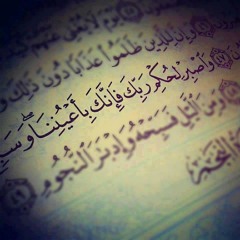 يَوْمَ لَا يُغْنِي عَنْهُمْ
وَإِنَّ لِلَّذِينَ ظَلَمُوا عَذَابًا دُونَ ذَٰلِكَ
وَاصْبِرْ لِحُكْمِ رَبِّكَ فَإِنَّكَ بِأَعْيُنِنَا وَسَبِّ
وَمِنَ اللَّيْلِ فَسَبِّحْهُ وَإِدْبَارَ النُّجُومِ ٤٩
النَّجْمِ